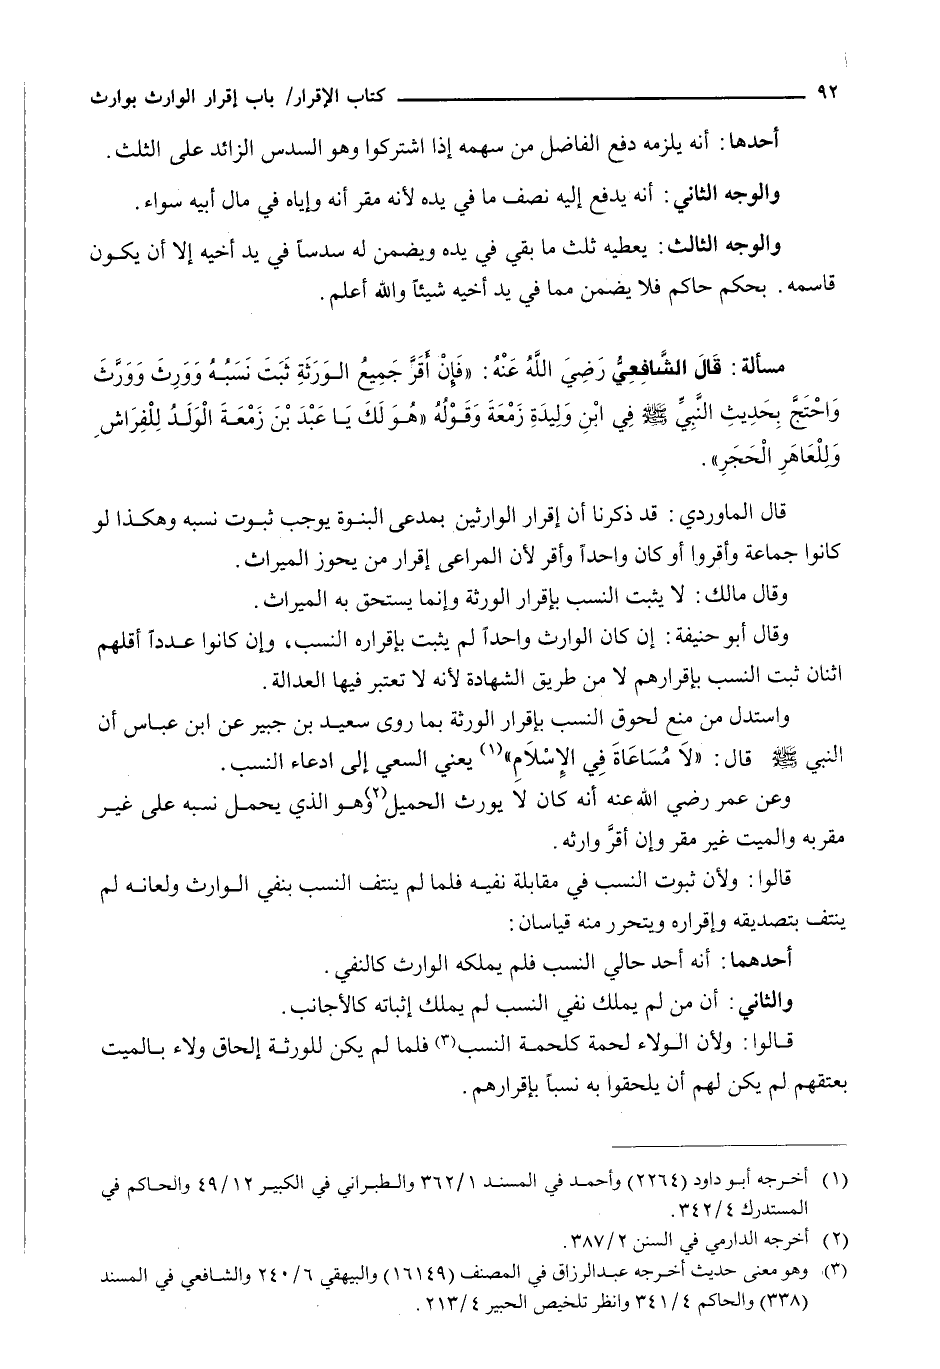 ٩٢ ــــــــــــــــــــــــــــــــــــــــ كتاب الإقرار/ باب إقرار الوارث بوارث
أحدها: أنه يلزمه دفع الفاضل من سهمه إذا اشتركوا وهو السدس الزائد على الثلث.
والوجه الثاني: أنه يدفع إليه نصف ما في يده لأنه مقر أنه وإياه في مال أبيه سواء.
والوجه الثالث: يعطيه ثلث ما بقي في يده ويضمن له سدساً في يد أخيه إلا أن يكون
قاسمه. بحكم حاكم فلا يضمن مما في يد أخيه شيئاً والله أعلم.
مسألة: قَالَ الشَّافِعِيُّ رَضِيَ اللَّهُ عَنْهُ: «فَإِنْ أَقَرَّ جَمِيعُ الـوَرَثَةِ ثَبَتَ نَسَبُـهُ وَوَرِثَ وَوَرَّثَ
وَاحْتَجَّ بِحَدِيثِ النَّبِيِّ ﷺ فِي ابْنِ وَلِيدَةِ زَمْعَةَ وَقَوْلُهُ «هُـوَ لَكَ يَـا عَبْدَ بْنَ زَمْعَـةَ الْوَلَـدُ لِلْفِرَاشِ
وَلِلْعَاهَرِ الْحَجَرِ».
قال الماوردي: قد ذكرنا أن إقرار الوارثين بمدعى البنوة يوجب ثبوت نسبه وهكـذا لو
كانوا جماعة وأقروا أو كان واحداً وأقر لأن المراعى إقرار من يحوز الميراث.
وقال مالك: لا يثبت النسب بإقرار الورثة وإنما يستحق به الميراث.
وقال أبو حنيفة: إن كان الوارث واحداً لم يثبت بإقراره النسب، وإن كانوا عـدداً أقلهم
اثنان ثبت النسب بإقرارهم لا من طريق الشهادة لأنه لا تعتبر فيها العدالة.
واستدل من منع لحوق النسب بإقرار الورثة بما روى سعيـد بن جبير عن ابن عبـاس أن
النبي ﷺ قال: «لَا مُسَاعَاةَ فِي الإِسْلَامِ»(١) يعني السعي إلى ادعاء النسب.
وعن عمر رضي الله عنه أنه كان لا يورث الحميل(٢) وهـو الذي يحمـل نسبه على غيـر
مقربه والميت غير مقر وإن أقرَّ وارثه.
قالوا: ولأن ثبوت النسب في مقابلة نفيـه فلما لم ينتف النسب بنفي الـوارث ولعانـه لم
ينتف بتصديقه وإقراره ويتحرر منه قياسان:
أحدهما: أنه أحد حالي النسب فلم يملكه الوارث كالنفي.
والثاني: أن من لم يملك نفي النسب لم يملك إثباته كالأجانب.
قـالوا: ولأن الـولاء لحمة كلحمـة النسب(٣) فلما لم يكن للورثـة إلحاق ولاء بـالميت
بعتقهم لم يكن لهم أن يلحقوا به نسباً بإقرارهم.
(١) أخـرجه أبـو داود (٢٢٦٤) وأحمـد في المسنـد ٣٦٢/١ والطبـراني في الكبيـر ٤٩/١٢ والحـاكم في
المستدرك ٣٤٢/٤.
(٢) أخرجه الدارمي في السنن ٣٨٧/٢.
(٣) وهـو معنى حديث أخـرجه عبـدالرزاق في المصنف (١٦١٤٩) والبيهقي ٢٤٠/٦ والشـافعي في المسند
(٣٣٨) والحاكم ٣٤١/٤ وانظر تلخيص الحبير ٢١٣/٤.